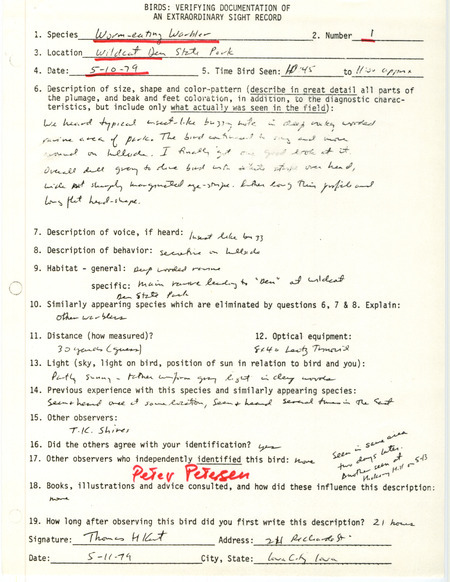 BIRDS: VERIFYING DOCUMENTATION OF
AN EXTRAORDINARY SIGHT RECORD
1. Species Worm-eating Warbler 2. Number 1
3. Location Wildcat Den State Park
4. Date: 5-10-79 5. Time Bird Seen: 10:45 to 11:00 approx
6. Description of size, shape and color-pattern (describe in great detail all parts of
the plumage, and beak and feet coloration, in addition, to the diagnostic charac-
teristics, but include only what actually was seen in the field):
We heard typical insect-like buzzy in deep wooded
ravine area of park. The bird continued to sing and move
around on hillside. I finally got one good look at it
Overall dull grey to olive bird with stripe over head,
eye-stripe. Rather long thin profile and
long flat head-shape.
7. Description of voice, if heard: Insect like buzz
8. Description of behavior: secretive on hillside
9. Habitat - general: deep wooded ravine
specific: main ravine leading to "Den" at Wildcat
Den State Park
10. Similarly appearing species which are eliminated by questions 6, 7 & 8. Explain:
other warblers
11. Distance (how measured)? 12. Optical equipment:
30 yards (guess) 8x40 Leitz Trinovid
13. Light (sky, light on bird, position of sun in relation to bird and you):
Partly sunny - rather uniform gray light in deep woods
14. Previous experience with this species and similarly appearing species:
Seen + heard once at same location, Seen + heard several times in the East
15. Other observers:
T.K. Shires
16. Did the others agree with your identification? yes
17. Other observers who independently identified this bird: none
Seen in same area
two days later.
Another seen at
Hickory Hill on 5-13
Peter Petersen
18. Books, illustrations and advice consulted, and how did these influence this description:
none
19. How long after observing this bird did you first write this description? 21 hours
Signature: Thomas H Kent Address: 211 Richards St.
Date: 5-11-79 City, State: Iowa City Iowa